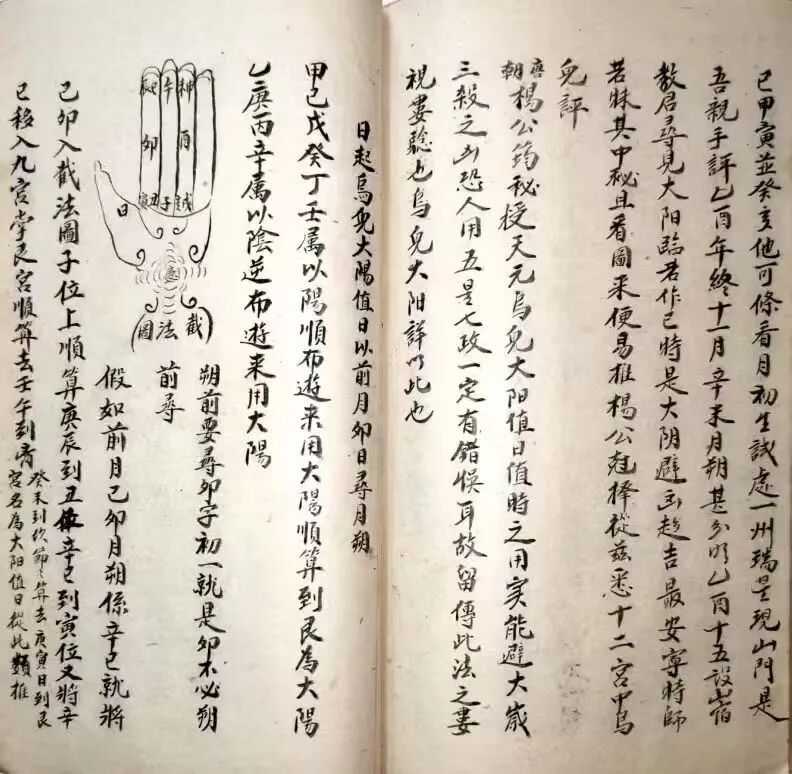 已甲寅並癸亥他可條看月初生誠處一州瑞呈現山鬥是
吾親手評乙酉年終十一月辛未月朔甚分明乙酉十五設
教君尋見大阳臨若作巳時是大阴避凶趋吉最安寧時師
若昧其中秘且看圖来便易推楊公尅择從兹悉十二宮中烏
兔評
唐朝楊公筠秘授天元烏兔大阳值日值時之用実能避大歲
三殺之凶恐人用五星七政一定有錯悮耳故留傳此法之婁
視婁聪也烏兔大阳詳以此也
日起烏兔大陽值日以前月卯日尋月朔
甲己戊癸丁壬属以陽順布遊来用大陽順算到艮為大陽
乙庚丙辛属以陰逆布遊来用大陽
朔前要尋卯字初一就是卯不必朔
前尋
假如前月己卯月朔係辛巳就將
神
酉
誠
午
子
丑
辰
卯
寅
日
截法圖
己卯入截法圖子位上順算庚辰到丑位辛巳到寅位又將辛
巳移入九宮掌艮宮順算去壬午到离
癸未到坎節々算去庚寅日到艮
宮名為大阳值日從此類推